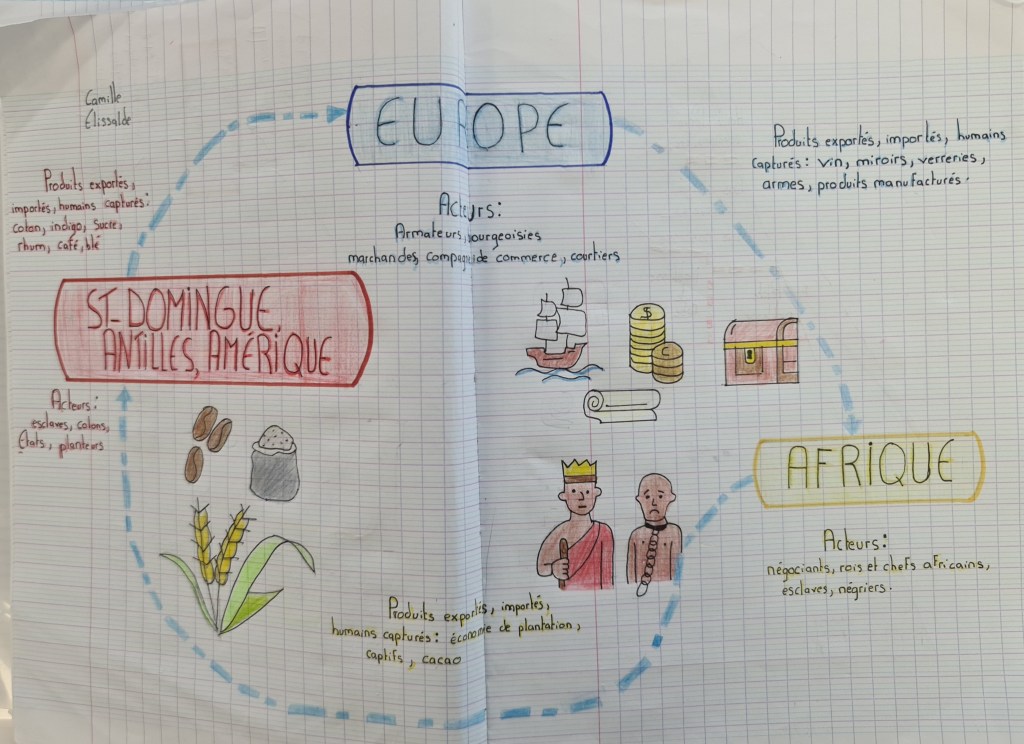 Camille
Elissalde
EUROPE
Produits exportés, importés, humains
capturés : vin, miroirs, verreries,
armes, produits manufacturés.
Produits exportés,
importés, humains capturés :
coton, indigo, sucre,
rhum, café, blé
Acteurs :
Armateurs, bourgeoisies
marchandes, compagnie de commerce, courtiers
ST-DOMINGUE,
ANTILLES, AMÉRIQUE
$
C
Acteurs :
esclaves, colons,
États, planteurs
AFRIQUE
Acteurs :
négociants, rois et chefs africains,
esclaves, négriers.
Produits exportés, importés,
humains capturés : économie de plantation,
captifs, cacao